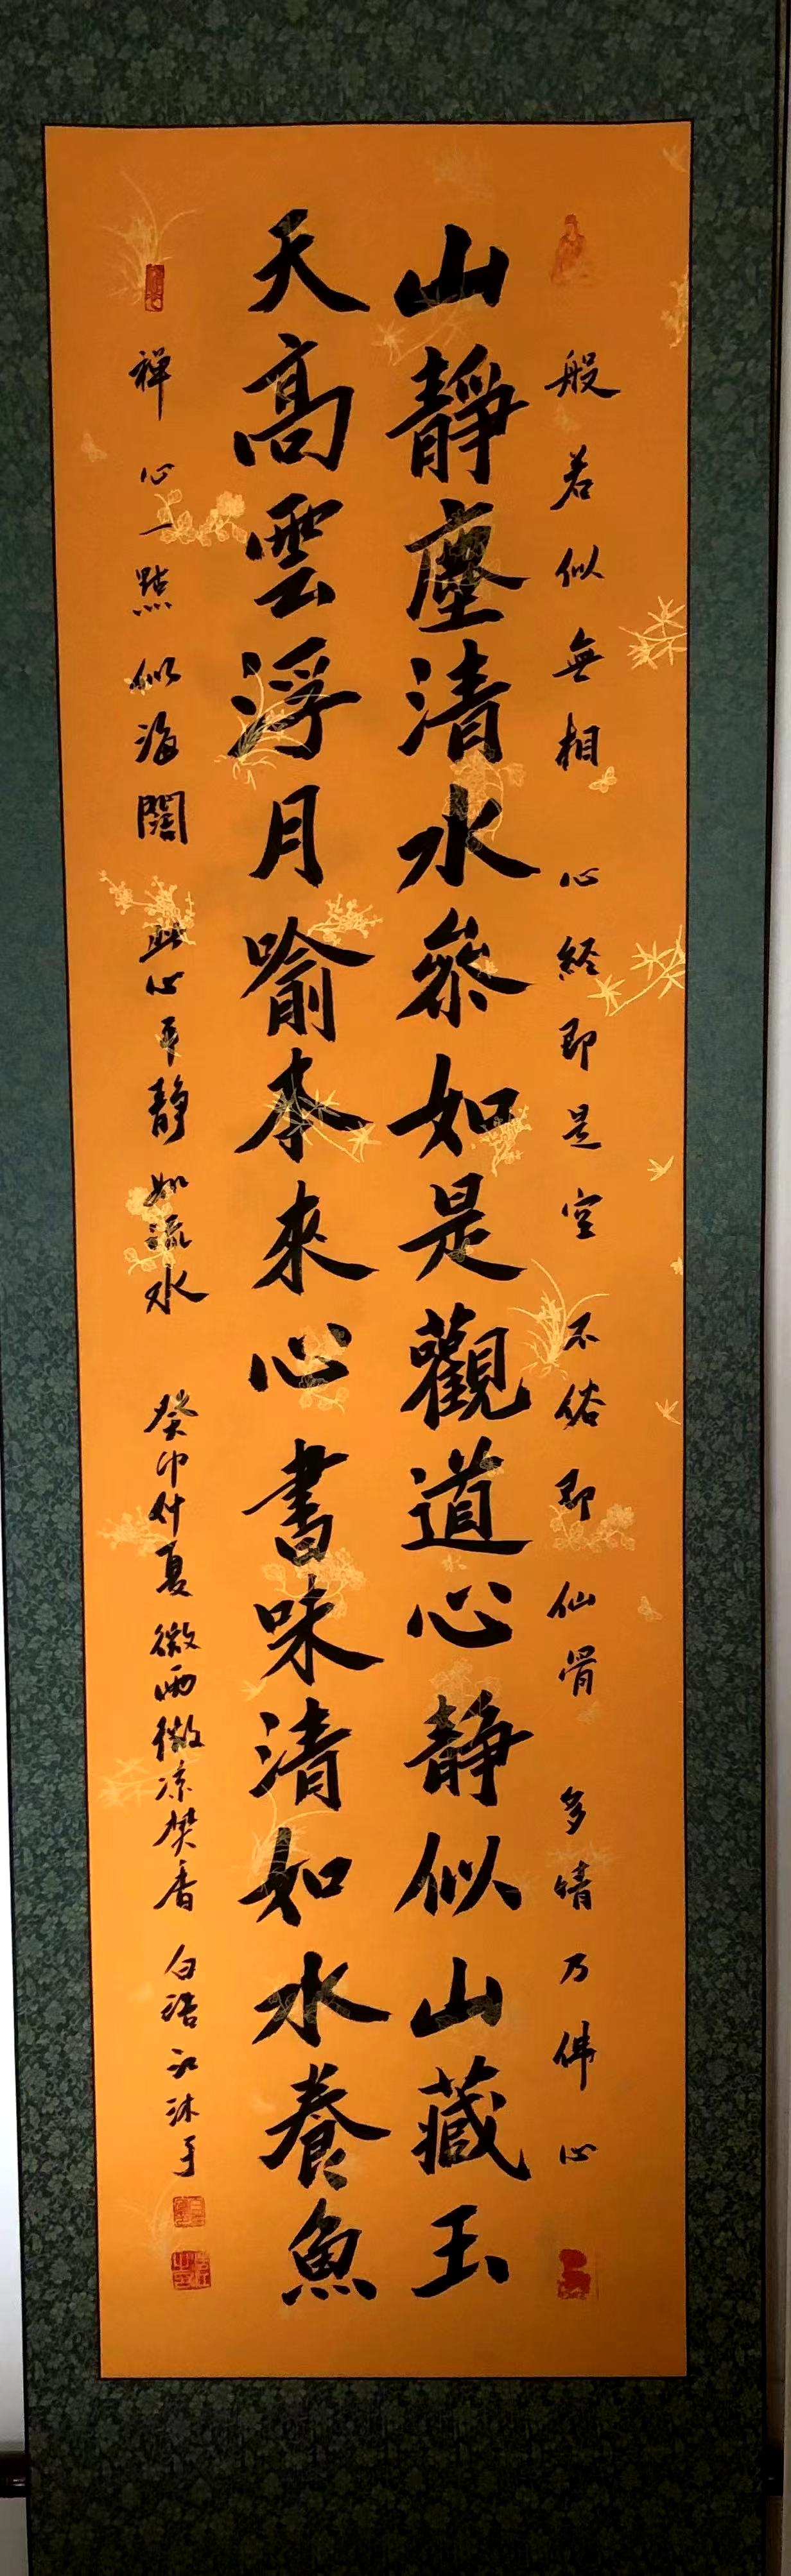 般若似無相 心經即是空 不俗即仙骨 多情乃佛心
山靜塵清水參如是觀道心靜似山藏玉
天高雲浮月喻本來心書味清如水養魚
禪心一點似海闊 此心平靜如流水 癸卯仲夏微雨微涼焚香 白語永沐手